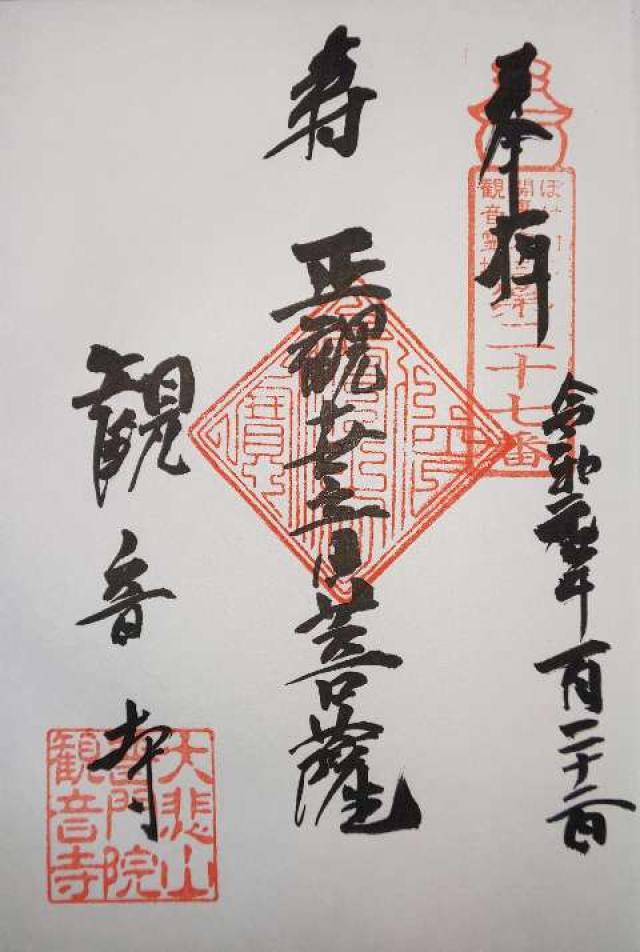 奉拝
観音霊場
第二十七番
令和元年 月二十二日
寿 正観世音菩薩
観音寺
大悲山
普門院
観音寺